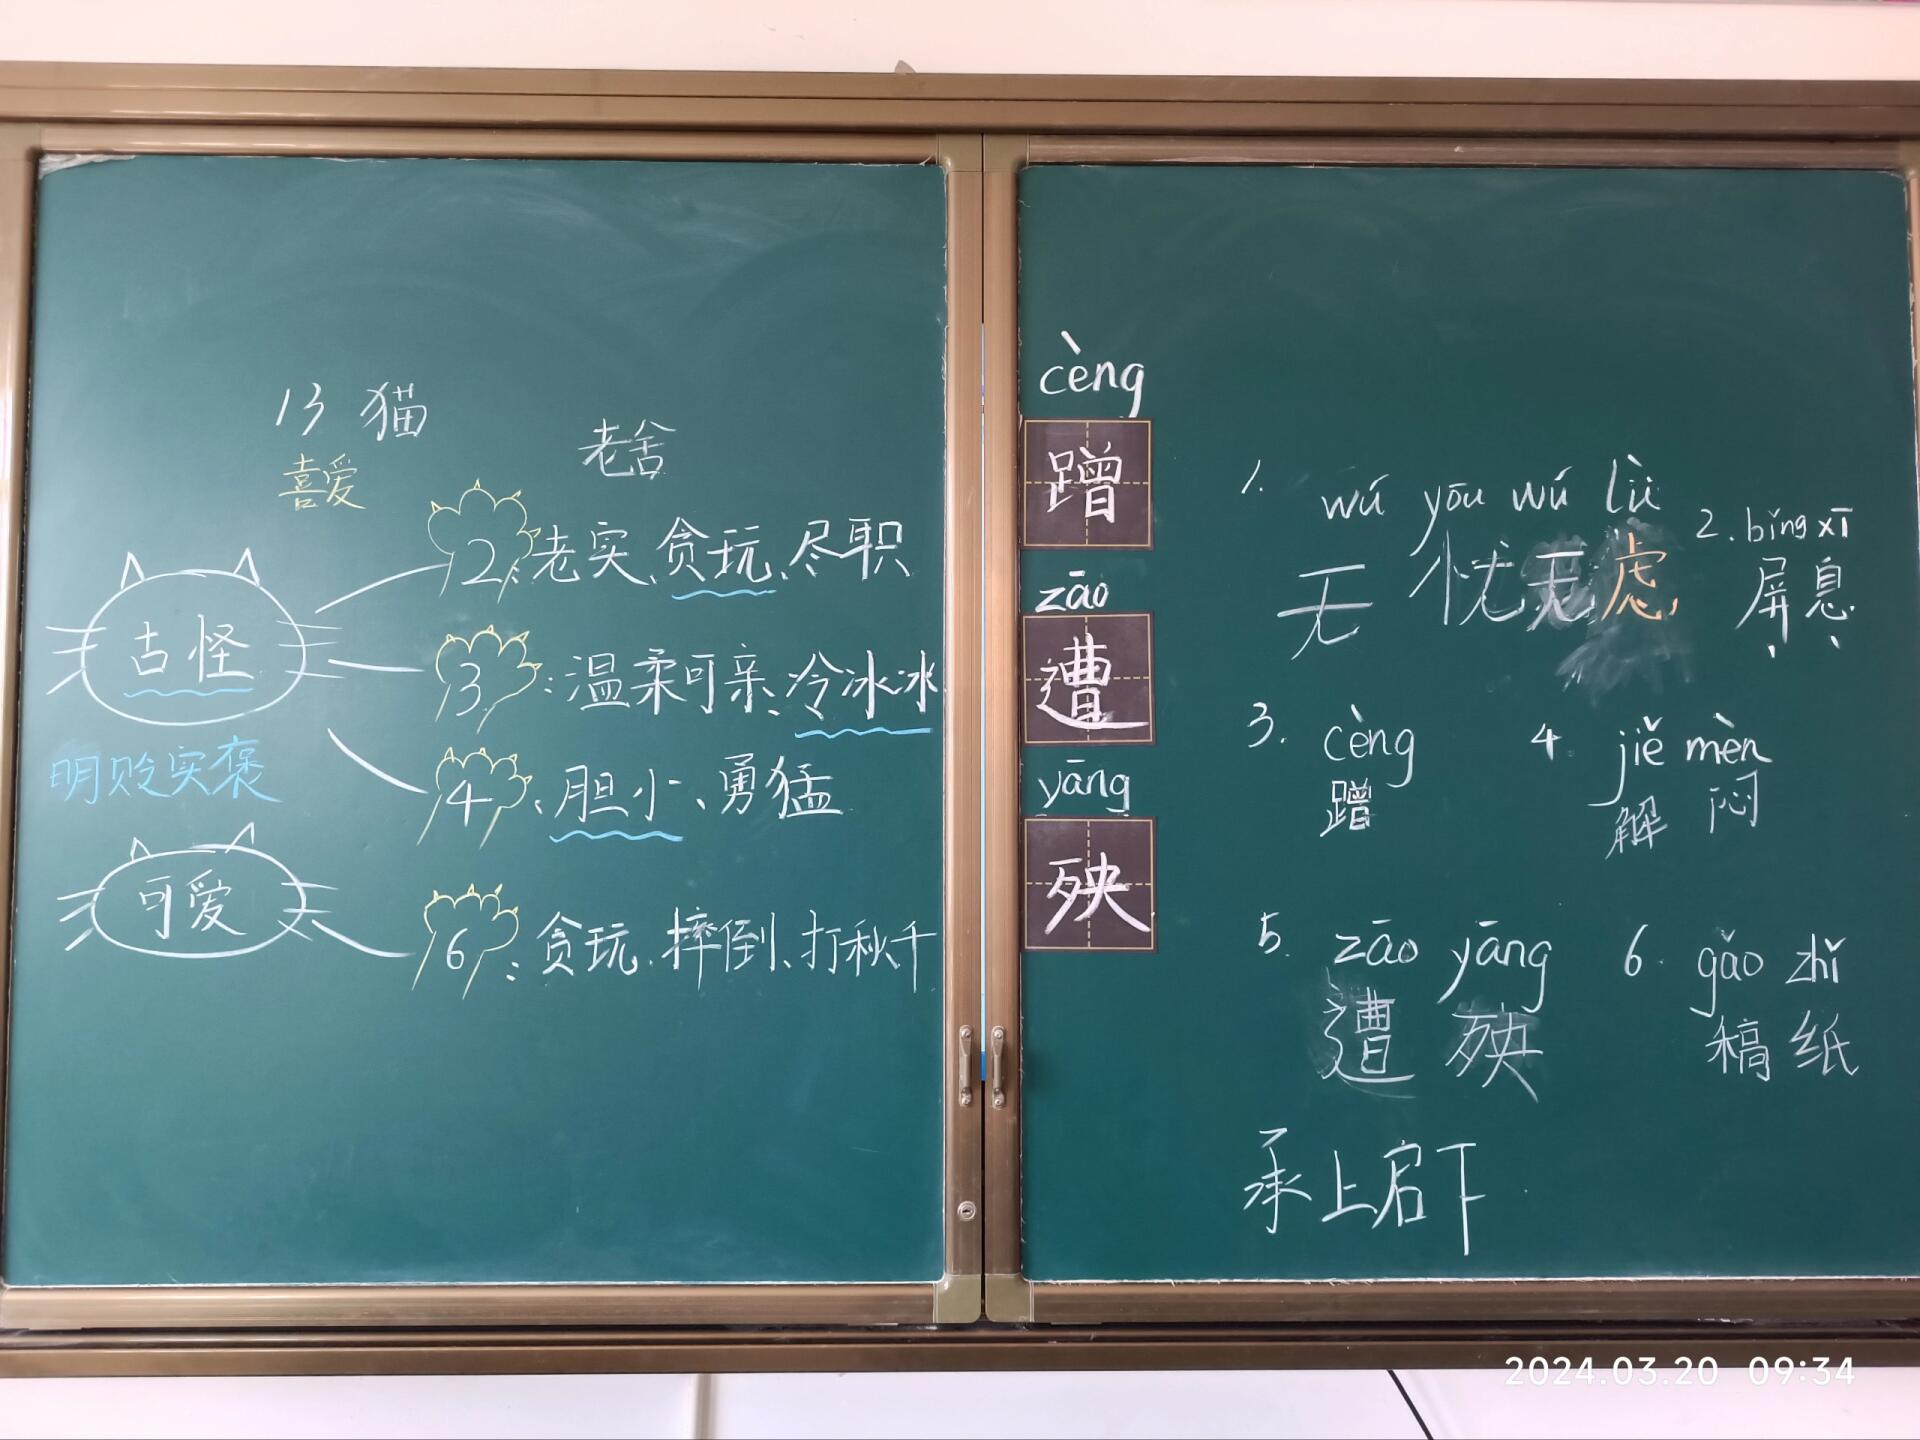 13 猫
老舍
喜爱
2:老实、贪玩、尽职
古怪
3:温柔可亲、冷冰冰
明贬实褒
4、胆小、勇猛
可爱
6:贪玩、摔倒、打秋千
cèng
蹭
zāo
遭
yāng
殃
1. wú yōu wú lǜ
无忧无虑
2. bǐng xī
屏息
3. cèng
蹭
4. jiě mèn
解闷
5. zāo yāng
遭殃
6. gǎo zhǐ
稿纸
承上启下
2024.03.20 09:34